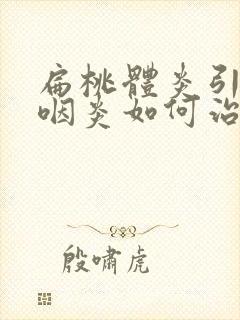 扁桃體炎引
咽炎如何治
殷嘯虎